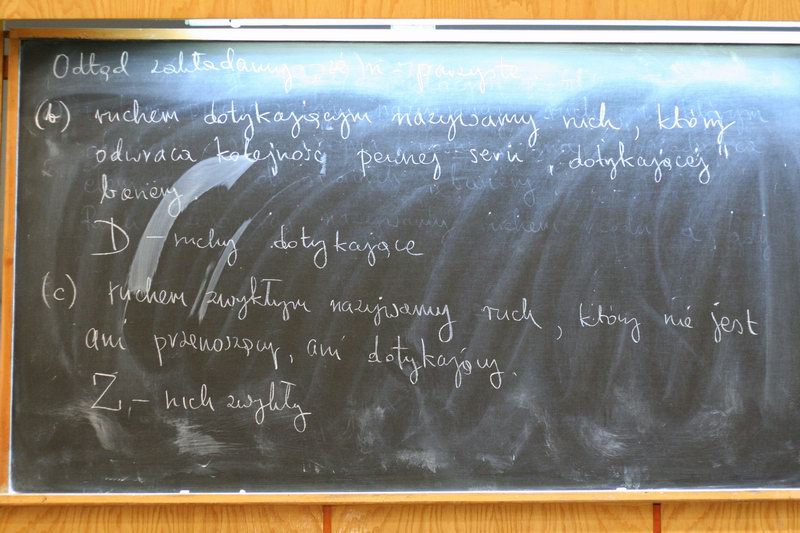 Odtąd zakładamy, że n - parzyste
(b) ruchem dotykającym nazywamy ruch, który
odwraca kolejność pewnej serii „dotykającej"
bariery.
D - ruchy dotykające
(c) ruchem zwykłym nazywamy ruch, który nie jest
ani przenoszący, ani dotykający.
Z - ruch zwykły